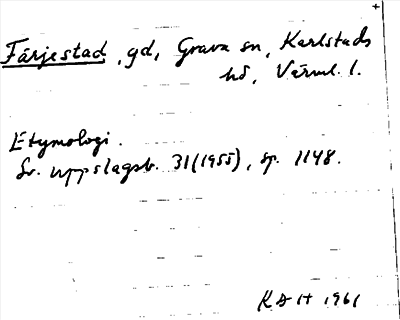 Färjestad, gd, Grava sn, Karlstads
hd, Värml. l.
Etymologi.
Sv. uppslagsb. 31(1955), sp. 1148.
KDH 1961